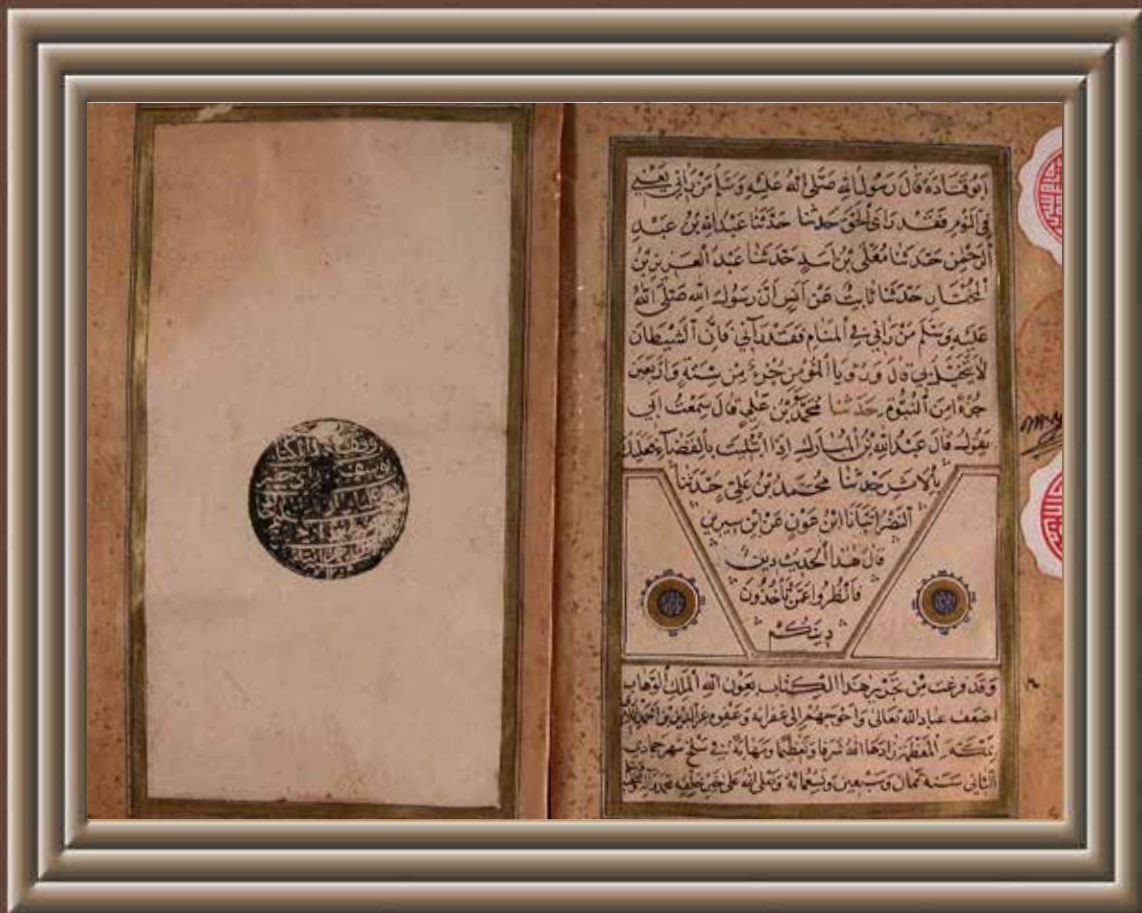 أبو قتادة قال رسول الله صلى الله عليه وسلم من رآني يعني
في النوم فقد رأى الحق حدثنا حدثنا عبد الله بن عبد
الرحمن حدثنا معلى بن اسد حدثنا عبد العزيز بن
المختار حدثنا ثابت عن أنس أن رسول الله صلى الله
عليه وسلم من رآني في المنام فقد رآني فان الشيطان
لا يتخيل بي قال ورؤيا المؤمن جزء من ستة واربعين
جزءا من النبوة حدثنا محمد بن علي قال سمعت أبي
يقول قال عبد الله بن المبارك إذا ابتليت بالقضاء فعليك
بالأثر حدثنا محمد بن علي حدثنا
النضر انبأنا ابن عون عن ابن سيرين
قال هذا الحديث دين
فانظروا عمن تأخذون
دينكم
وقد فرغت من تحرير هذا الكتاب بعون الله الملك الوهاب
اضعف عباد الله تعالى وأحوجهم إلى غفرانه وعفوه عز الدين بن أحمد
بمكة المعظمة زادها الله شرفا وتعظيما ومهابة في سلخ شهر جمادى
الثاني سنة ثمان وسبعين وتسعمائة وصلى الله على خير خلقه محمد